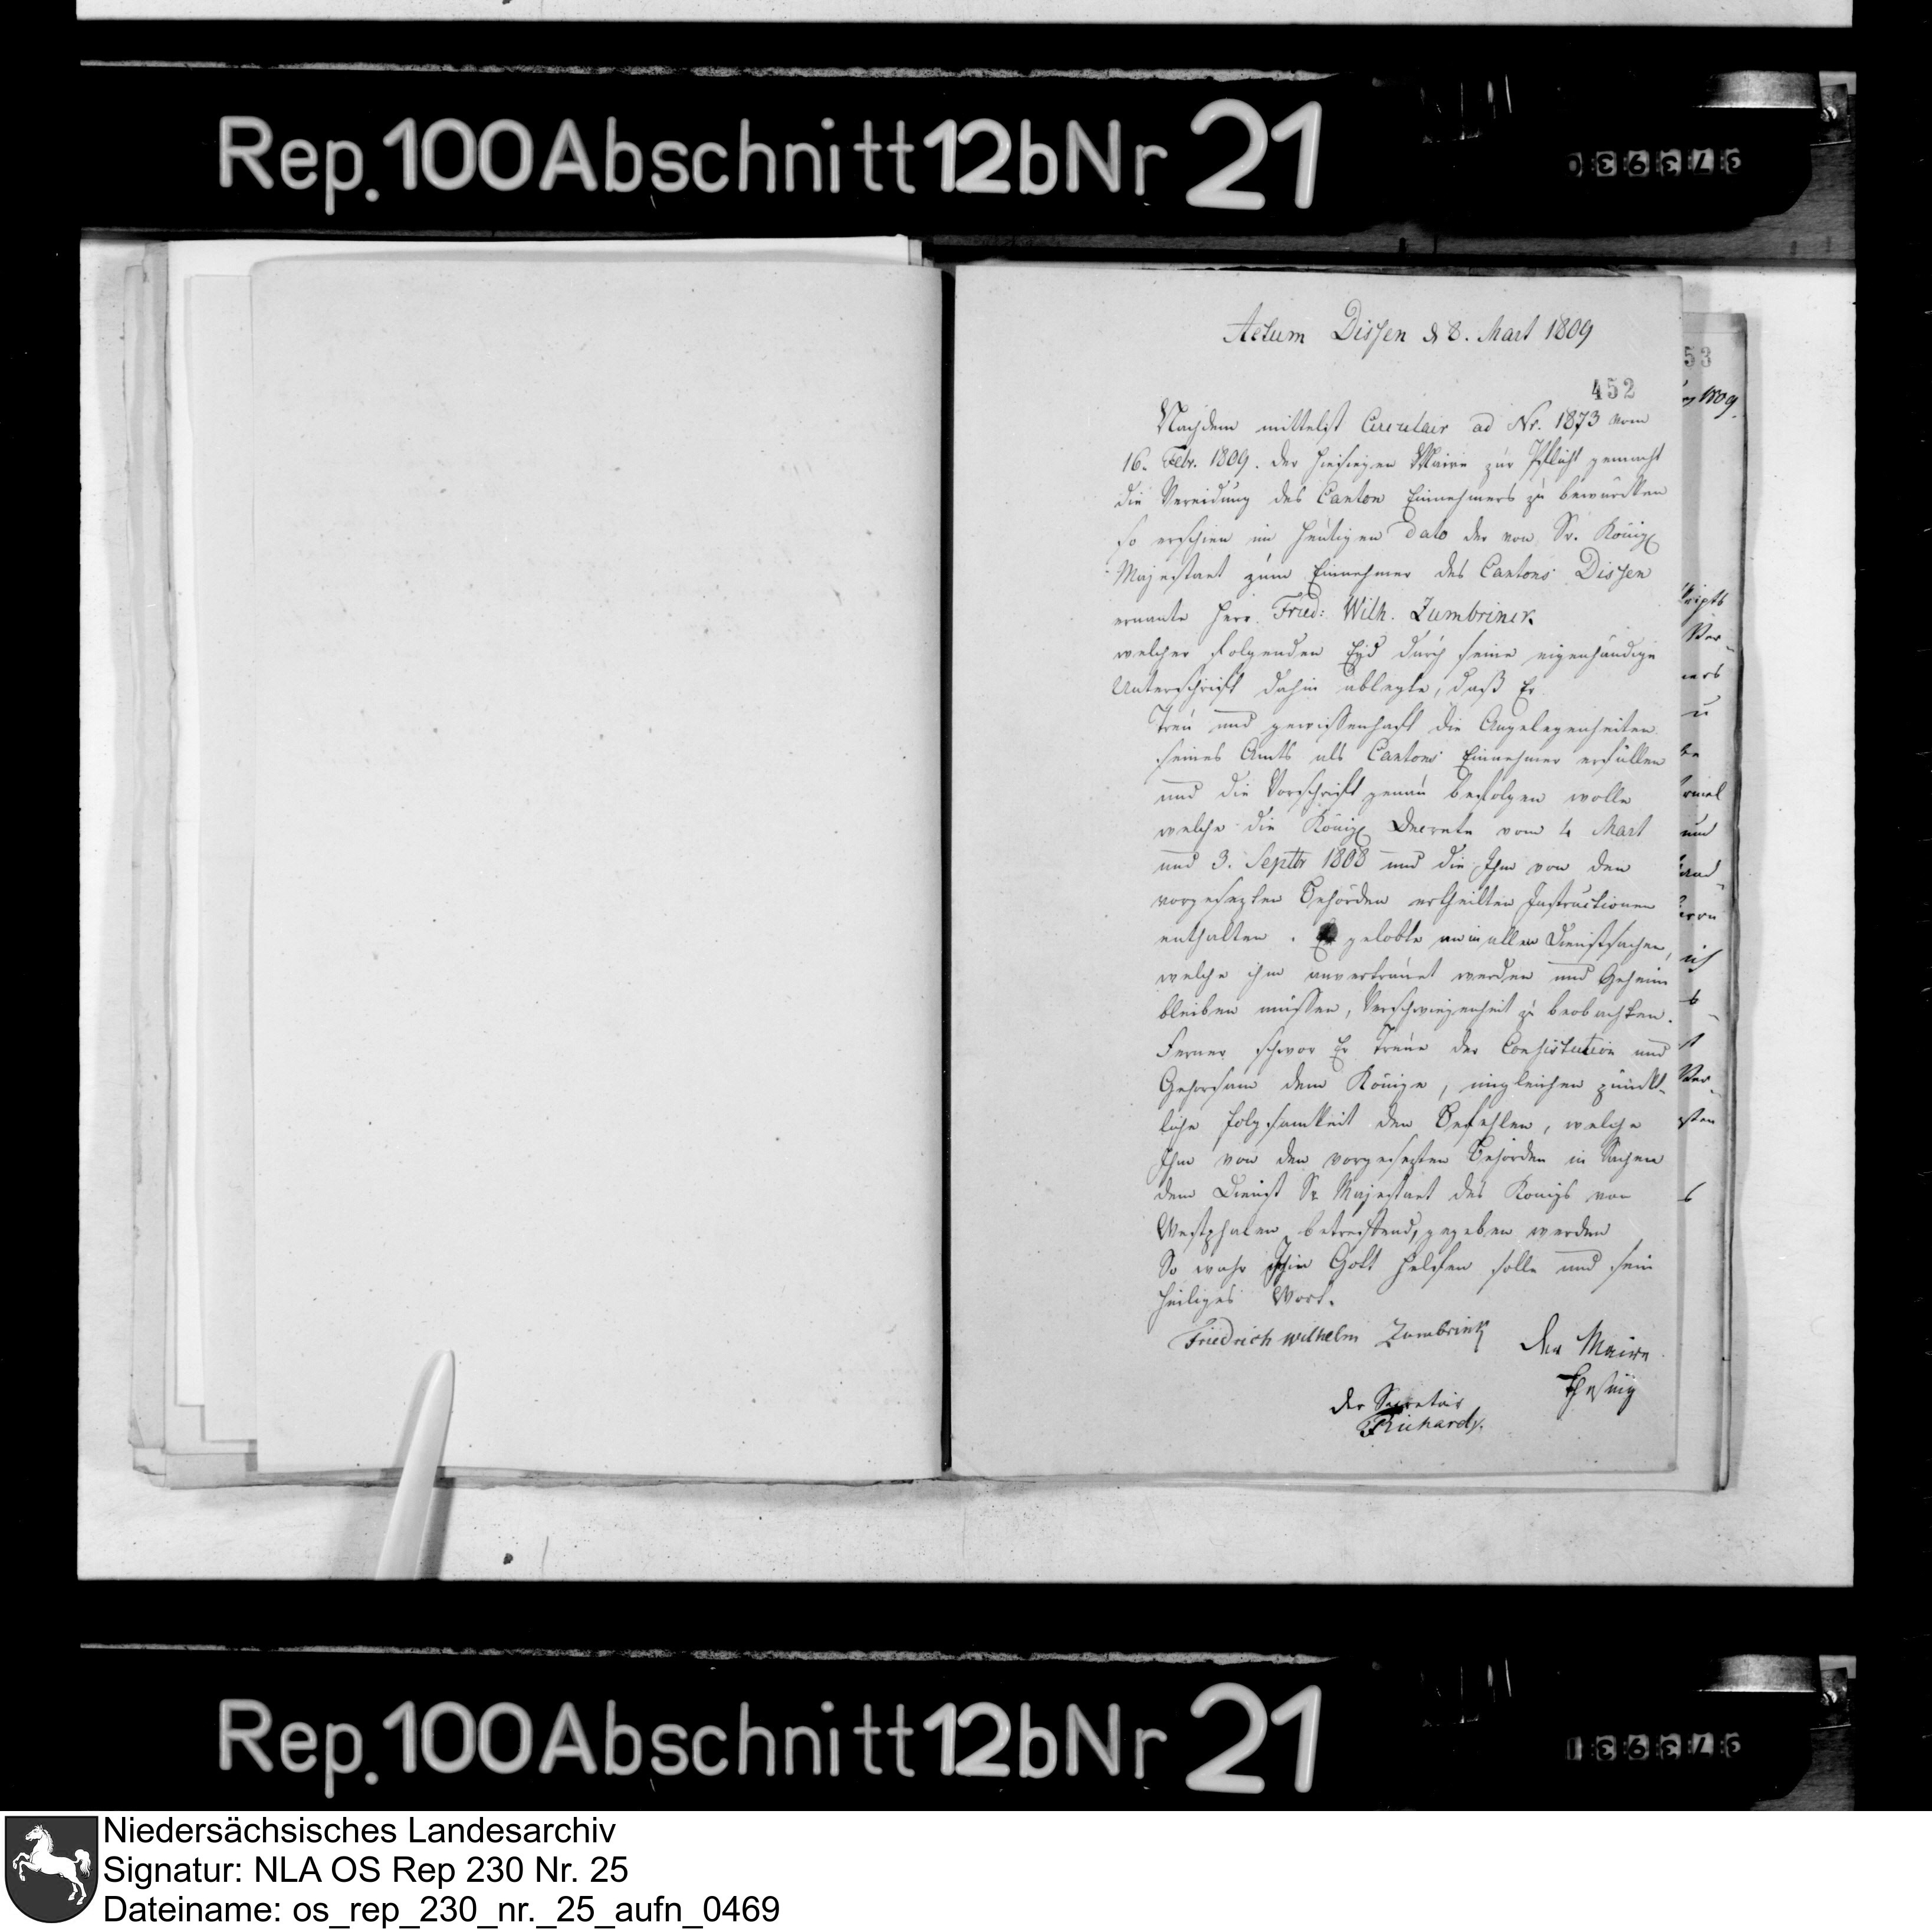 Rep. 100 Abschnitt 12b Nr 21
Actum Dissen d 8. Mart 1809
452
Nachdem mittelst Circulair ad Nr. 1873 vom
16. Febr. 1809. der hiesigen Mairie zur Pflicht gemacht
die Vereidung des Canton Einnehmers zu bewürken
so erschien im heutigen Dato der von Sr. Königl
Majestaet zum Einnehmer des Cantons Dissen
ernante Herr Fried: Wilh. Zumbrinck
welcher folgenden Eyd durch seine eigenhändige
Unterschrift dahin ablegte, daß Er
Treu und gewissenhaft die Angelegenheiten
seines Amts als Cantons Einnehmer erfüllen
und die Vorschrift genau befolgen wolle
welche die Königl Decrete vom 4 Mart
und 3. Septbr 1808 und die Ihm von den
vorgesezten Behörden ertheilten Instructionen
enthalten. Er gelobte in allen Dienstsachen,
welche ihm anvertrauet werden und Geheim
bleiben müssen, Verschwiegenheit zu beobachten.
Ferner schwor Er Treue der Constitution und
Gehorsam dem Könige, imgleichen pünkt-
liche Folgsamkeit den Befehlen, welche
Ihm von den vorgesezten Behörden in Sachen
dem Dienst Sr Majestaet des Königs von
Westphalen betreffend, gegeben werden
So wahr Ihm Gott helfen solle und sein
heiliges Wort.
Friedrich wilhelm Zumbrink
Der Maire
der Secretair
Richard
53
1809
Rep. 100 Abschnitt 12b Nr 21
Niedersächsisches Landesarchiv
Signatur: NLA OS Rep 230 Nr. 25
Dateiname: os_rep_230_nr._25_aufn_0469